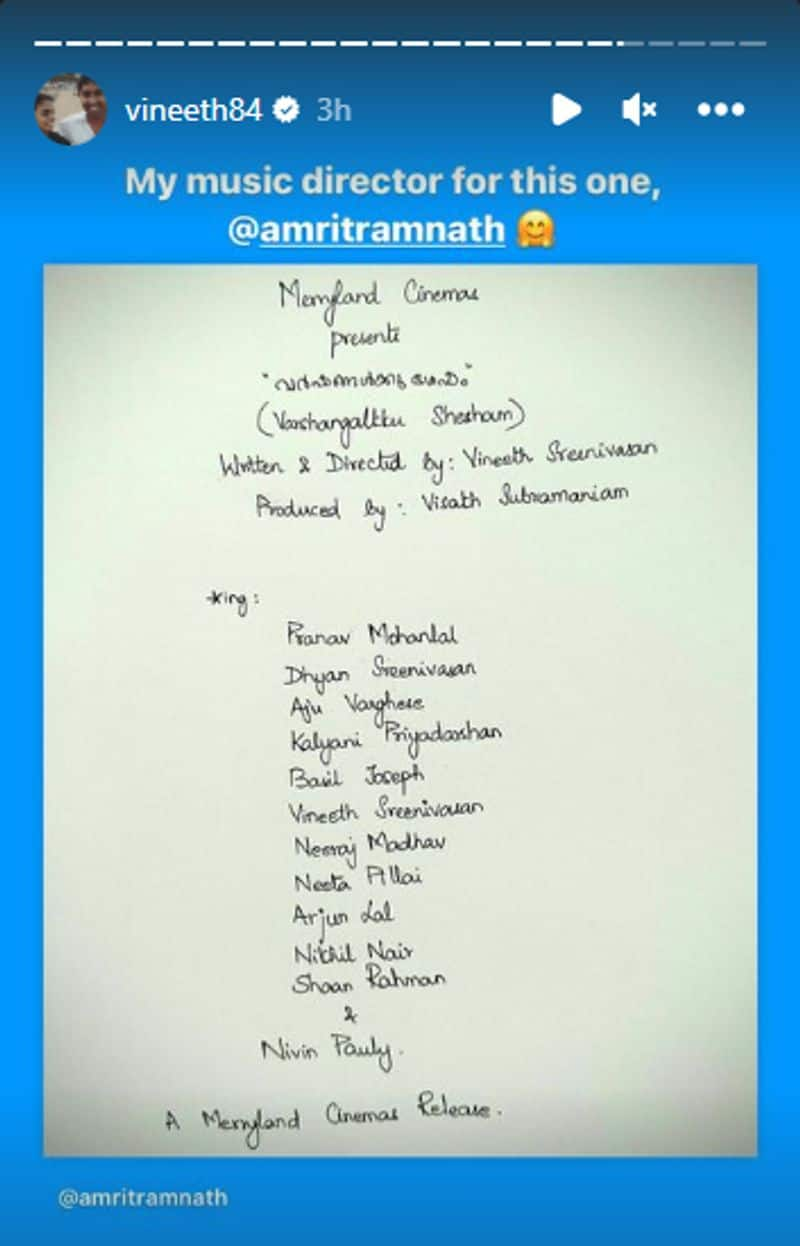 vineeth84 3h
My music director for this one,
@amritramnath 🤗
Merryland Cinemas
presents
"വർഷങ്ങൾക്കു ശേഷം"
(Varshangalkku Shesham)
Written & Directed by: Vineeth Sreenivasan
Produced by: Visakh Subramaniam
*ing:
Pranav Mohanlal
Dhyan Sreenivasan
Aju Varghese
Kalyani Priyadarshan
Basil Joseph
Vineeth Sreenivasan
Neeraj Madhav
Neeta Pillai
Arjun Lal
Nikhil Nair
Shaan Rahman
&
Nivin Pauly.
A Merryland Cinemas Release.
@amritramnath